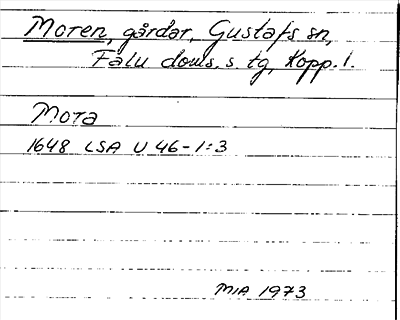 Moren, gårdar, Gustafs sn,
Falu doms. s. tg, Kopp. l.
Mora
1648 LSA U 46-1:3
MIA 1973